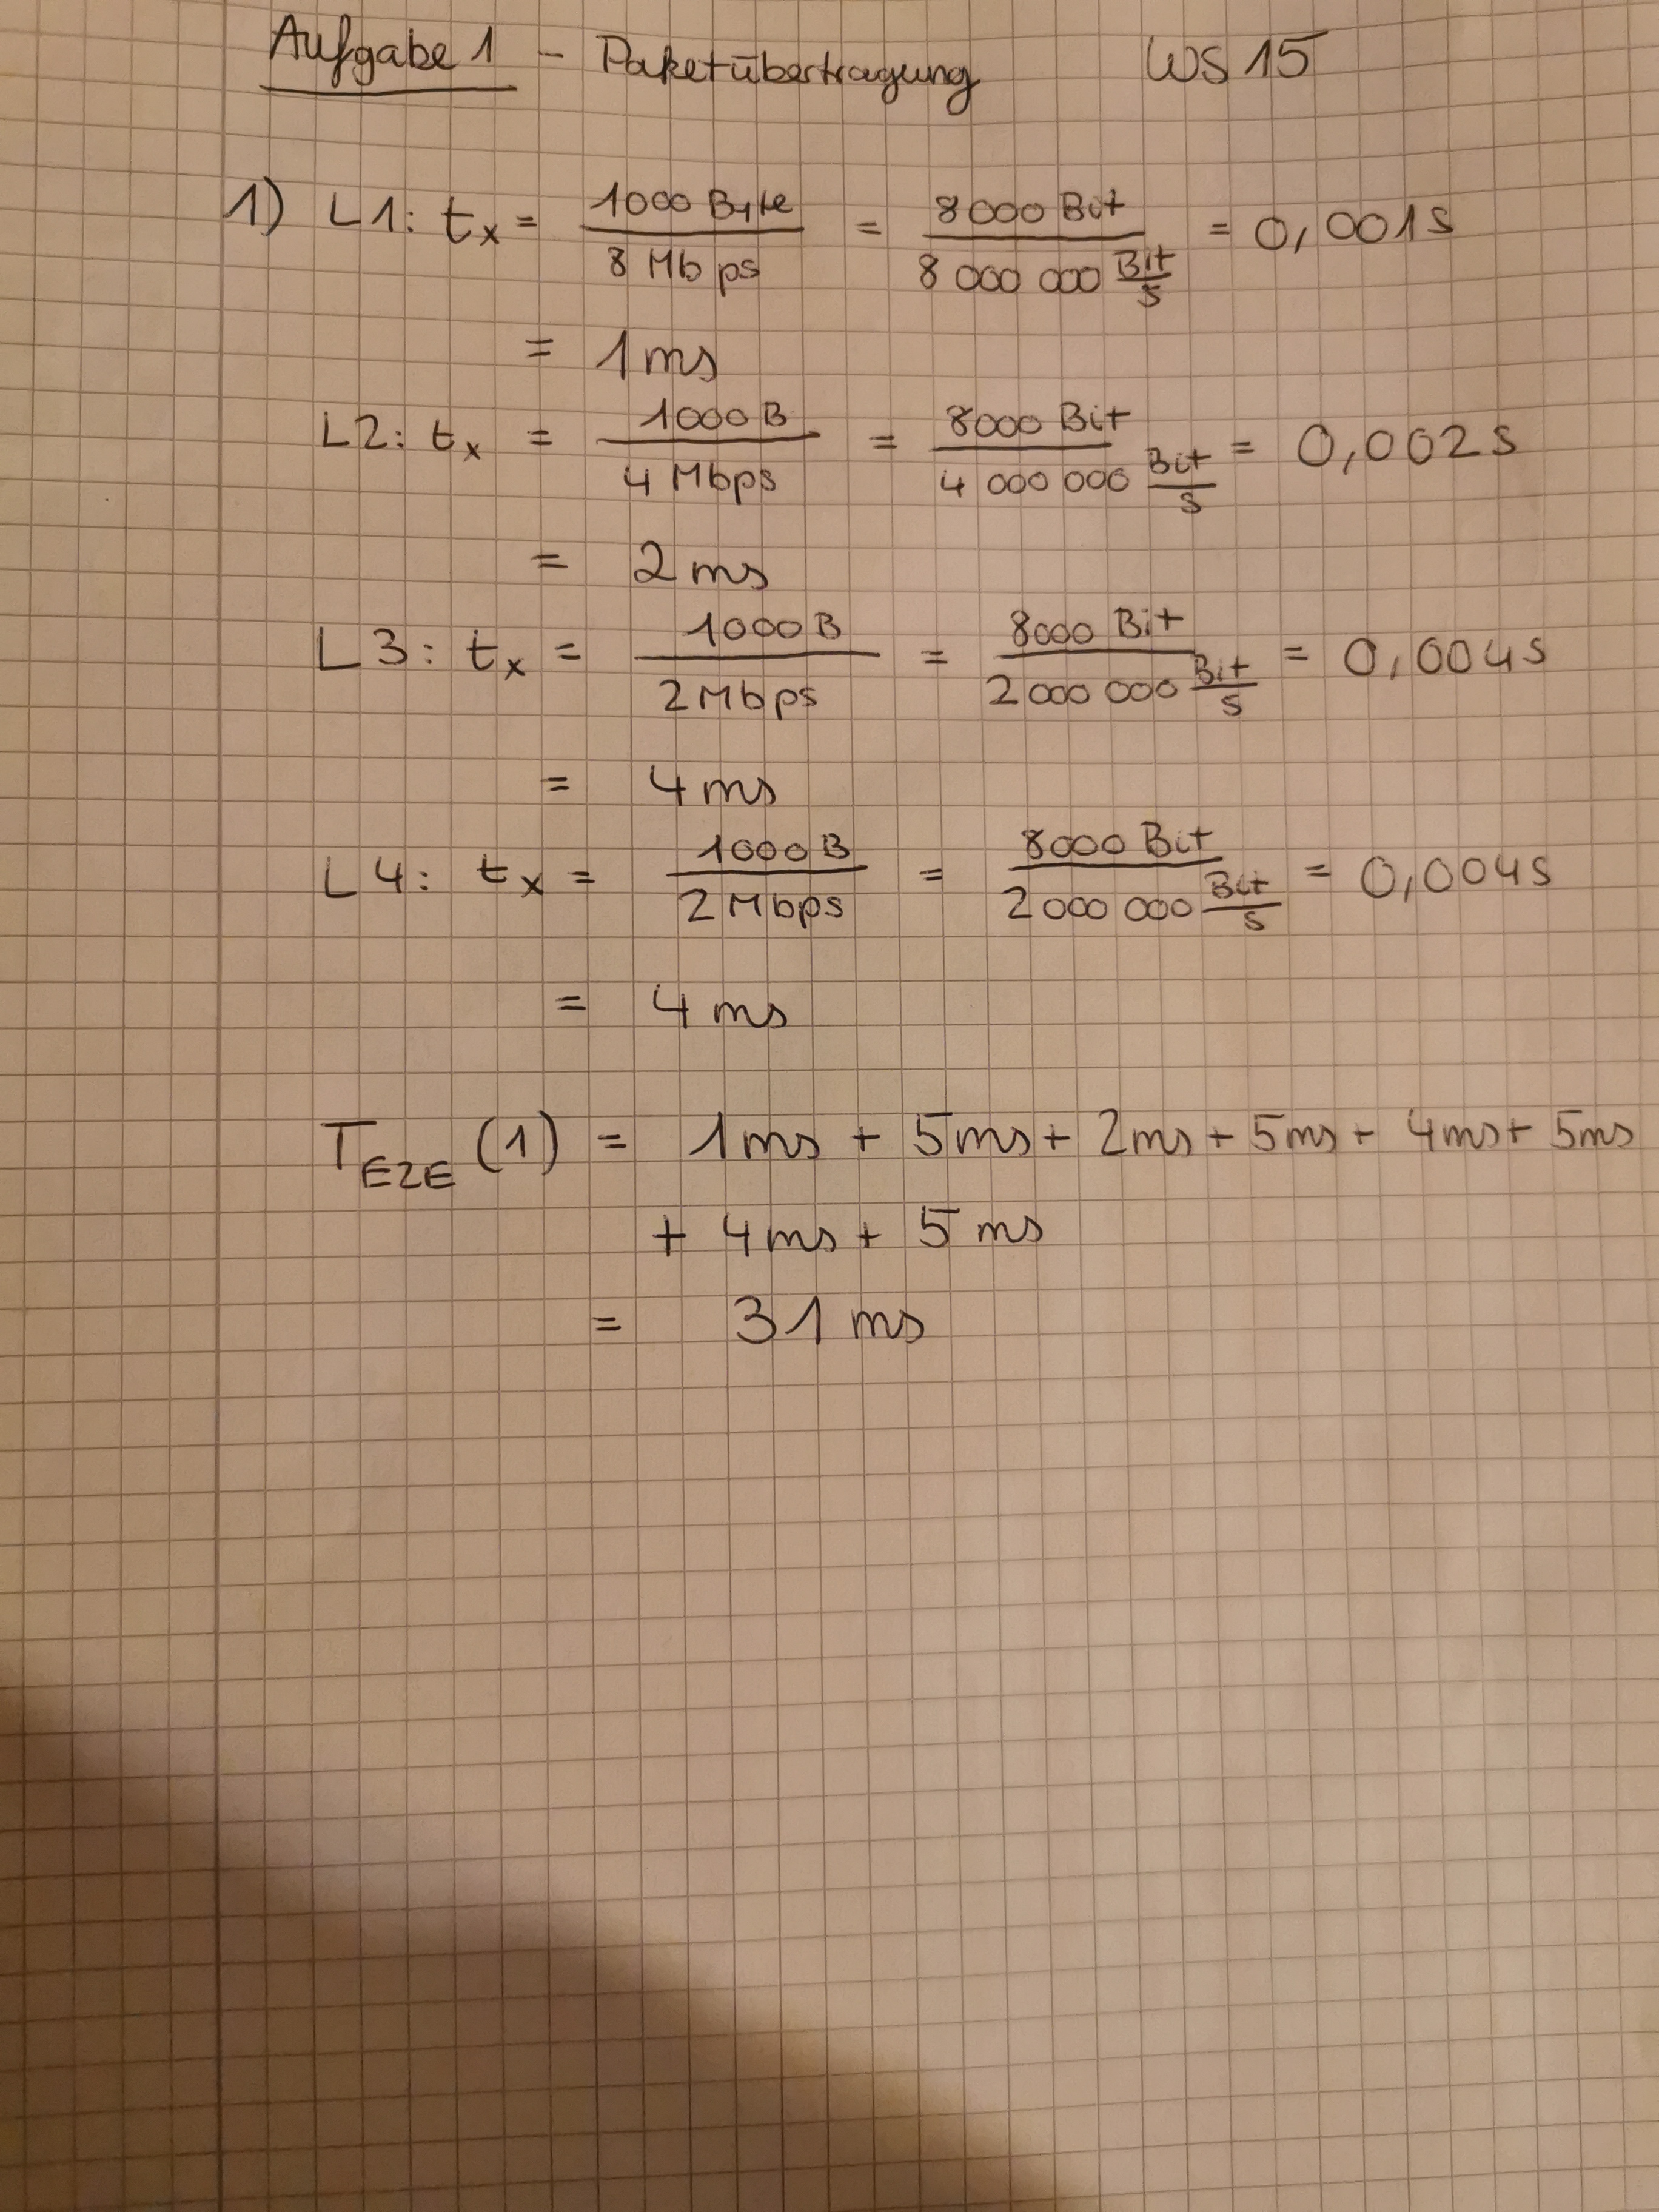 Aufgabe 1 - Paketübertragung WS 15
1) L1: tx = 1000 Byte / 8 Mbps = 8000 Bit / 8 000 000 Bit/s = 0,001s
= 1ms
L2: tx = 1000B / 4 Mbps = 8000 Bit / 4 000 000 Bit/s = 0,002s
= 2ms
L3: tx = 1000B / 2Mbps = 8000 Bit / 2 000 000 Bit/s = 0,004s
= 4ms
L4: tx = 1000B / 2Mbps = 8000 Bit / 2 000 000 Bit/s = 0,004s
= 4ms
TE2E (1) = 1ms + 5ms + 2ms + 5ms + 4ms + 5ms
+ 4ms + 5ms
= 31ms